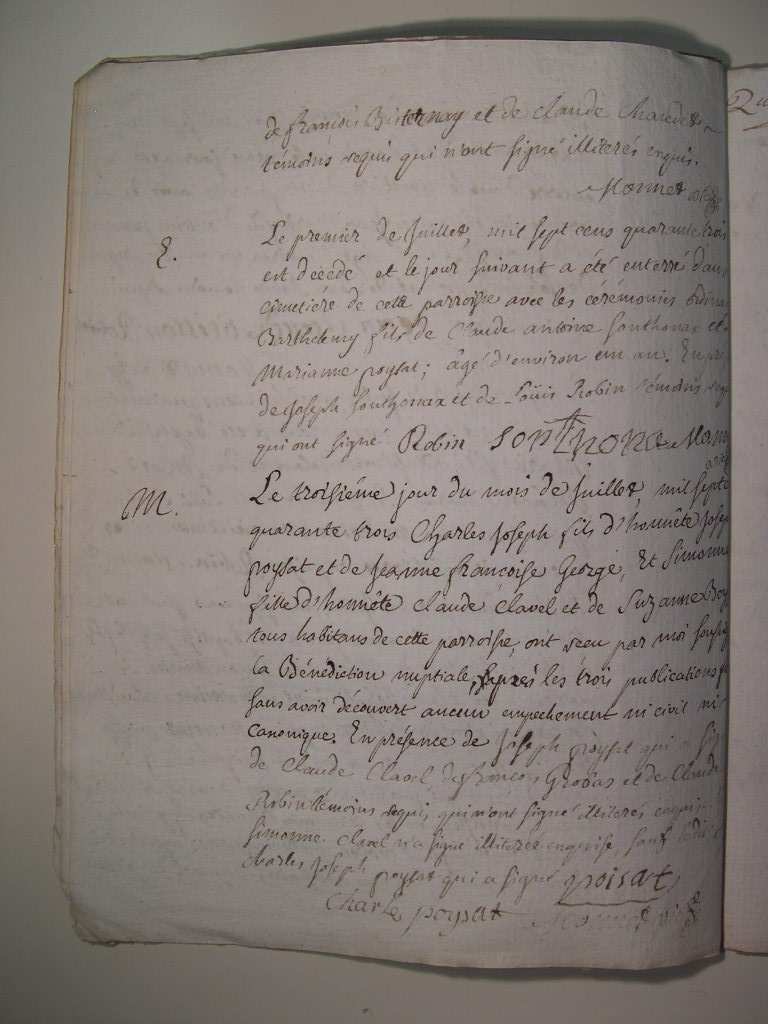 de françois Bisternay et de claude Chaudet
témoins requis qui n'ont signé illiterés enquis.
Monnet
E.
Le premier de Juillet, mil sept cens quarante trois
est décédé et le jour suivant a eté enterré dans
cimetiére de cette parroisse avec les cérémonies ordina
Barthelemy fils de Claude antoine Sonthonax et
Marianne poysat; âgé d'environ un an. En pré
de Joseph Sonthonax et de Loüis Robin témoins requ
qui ont signé Robin SONTHONAX Monn
M.
Le troisiéme jour du mois de Juillet, mil sept c
quarante trois Charles Joseph fils d'honnête Josep
poysat et de Jeanne francoise George, Et Simonne
fille d'honnête Claude Clavel et de Suzanne
tous habitans de cette parroisse, ont receu par moi soussig
la Bénédiction nuptiale, aprés les trois publications
sans avoir découvert aucun empechement ni civil ni
canonique. En présence de Joseph poysat qui a sig
de Claude Clavel, de françois Grobas et de Claude
Robin témoins requis qui n'ont signé illiterés enquis.
Simonne Clavel n'a signé illiterée enquise, sauf ledit
Charles Joseph poysat qui a signé poisat
Charle poysat Monnet